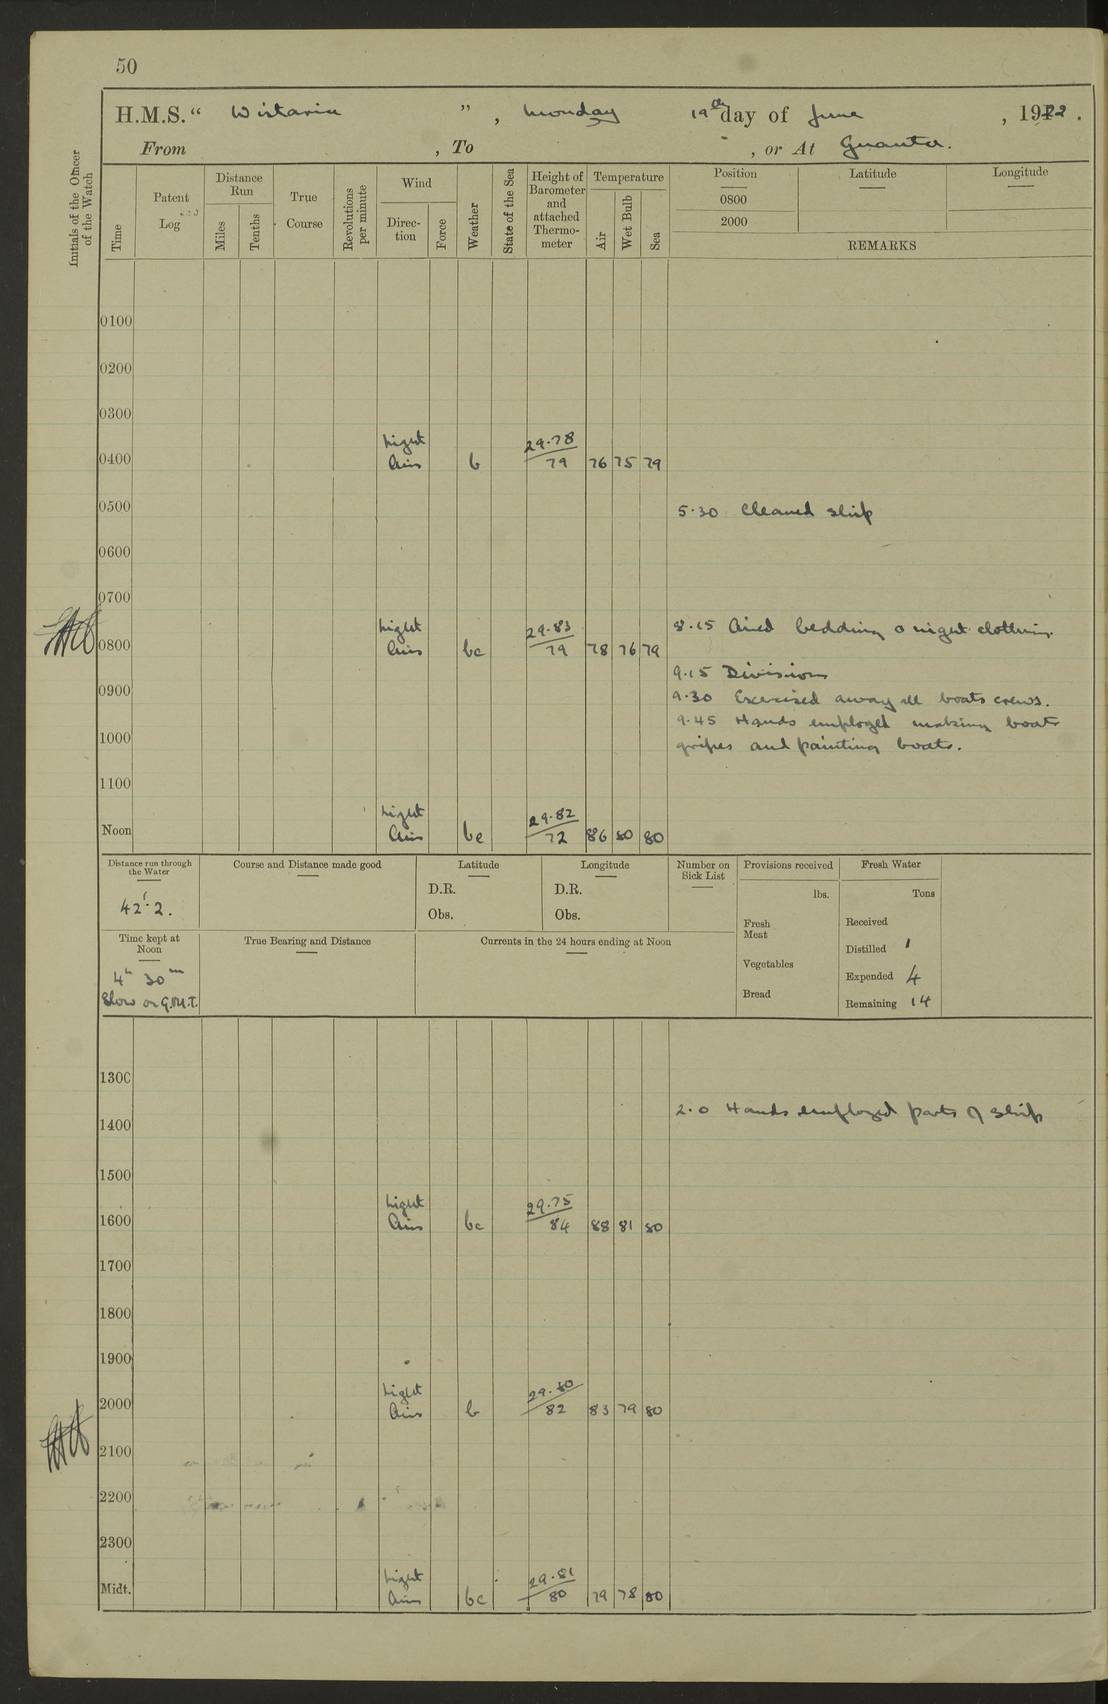 50
H.M.S. “ Wistaria ” , Monday 19th day of June , 1922 .
From , To , or At Guanta.
Initials of the Officer of the Watch
Time
Patent Log
Distance Run
Miles
Tenths
True Course
Revolutions per minute
Wind
Direction
Force
Weather
State of the Sea
Height of Barometer and attached Thermometer
Temperature
Air
Wet Bulb
Sea
Position Latitude Longitude
0800
2000
REMARKS
0100
0200
0300
Light 29.78
0400 Airs b 79 76 75 79
0500 5.30 Cleaned ship
0600
0700
Light 29.83 8.15 Aired bedding & night clothing.
0800 Airs bc 79 78 76 79
9.15 Divisions
0900 9.30 Exercised away all boats crews.
9.45 Hands employed making boats
1000 gripes and painting boats.
1100
Light 29.82
Noon Airs bc 72 86 80 80
Distance run through the Water
42'.2.
Course and Distance made good
Latitude
D.R.
Obs.
Longitude
D.R.
Obs.
Number on Sick List
Provisions received
lbs.
Fresh Meat
Vegetables
Bread
Fresh Water
Tons
Received
Distilled 1
Expended 4
Remaining 14
Time kept at Noon
4h 30m
Slow on G.M.T.
True Bearing and Distance
Currents in the 24 hours ending at Noon
1300
2.0 Hands employed parts of ship
1400
1500
Light 29.75
1600 Airs bc 84 88 81 80
1700
1800
1900
Light 29.80
2000 Airs b 82 83 79 80
2100
2200
2300
Light 29.81
Midt. Airs bc 80 79 78 80